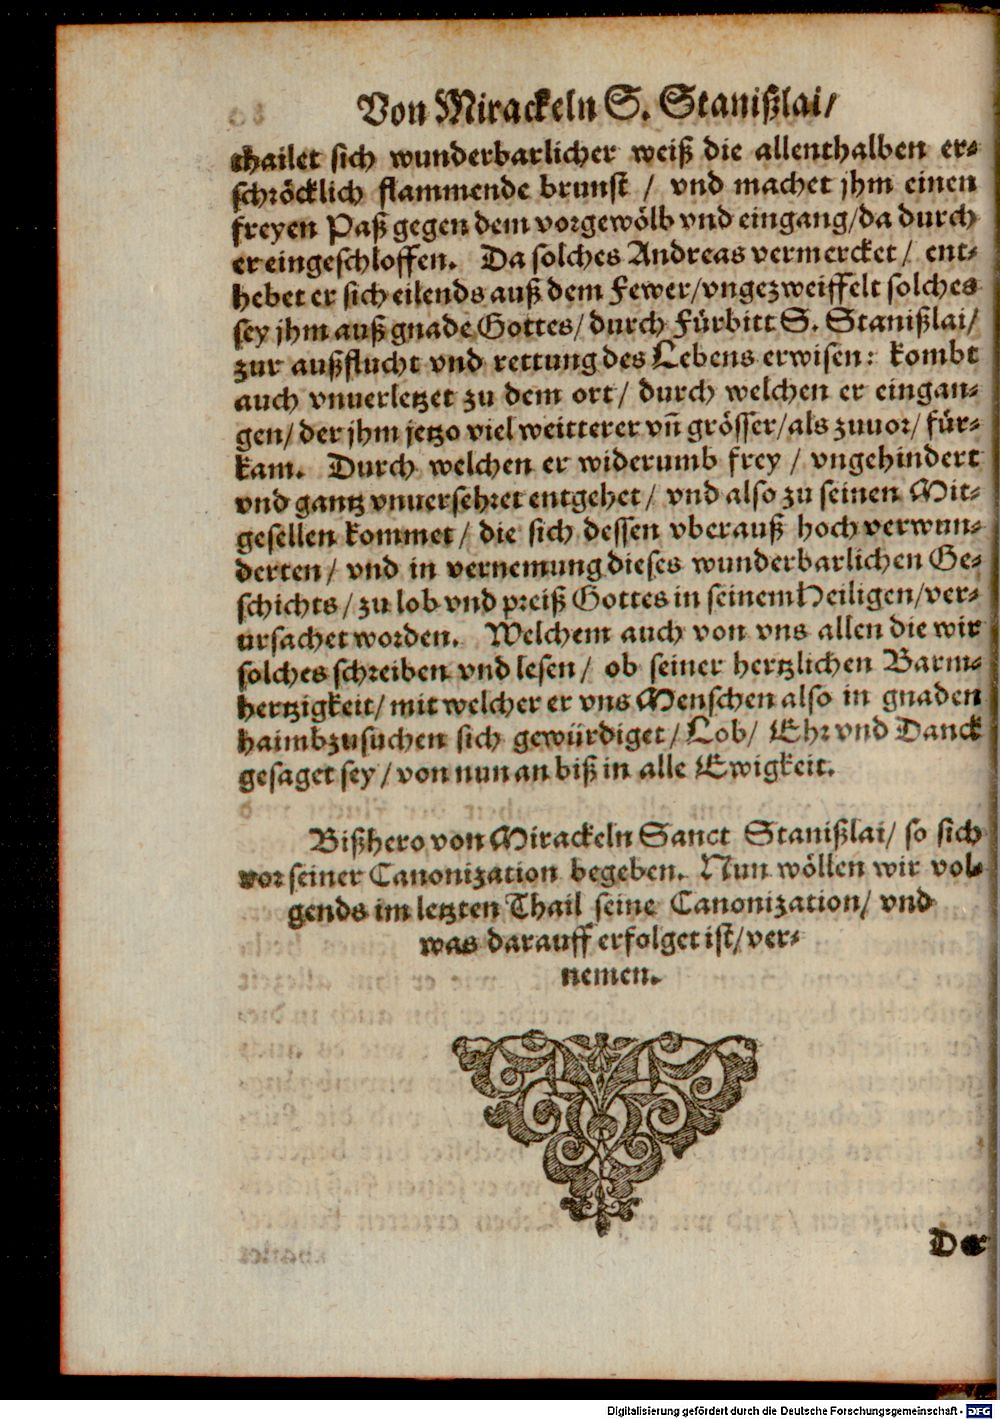 Von Mirackeln S. Stanißlai/
thailet sich wunderbarlicher weiß die allenthalben er-
schröcklich flammende brunst / vnd machet jhm einen
freyen Paß gegen dem vorgewölb vnd eingang/da durch
er eingeschloffen. Da solches Andreas vermercket / ent-
hebet er sich eilends auß dem Fewer/vngezweiffelt solches
sey jhm auß gnade Gottes/durch Fürbitt S. Stanißlai/
zur außflucht vnd rettung des Lebens erwisen: kombt
auch vnuerletzet zu dem ort / durch welchen er eingan-
gen/ der jhm jetzo viel weitterer vñ grösser/als zuuor/ für-
kam. Durch welchen er widerumb frey / vngehindert
vnd gantz vnuersehret entgehet / vnd also zu seinen Mit-
gesellen kommet / die sich dessen vberauß hoch verwun-
derten / vnd in vernemung dieses wunderbarlichen Ge-
schichts / zu lob vnd preiß Gottes in seinem Heiligen/ver-
ursachet worden. Welchem auch von vns allen die wir
solches schreiben vnd lesen / ob seiner hertzlichen Barm-
hertzigkeit/ mit welcher er vns Menschen also in gnaden
haimbzusuchen sich gewürdiget / Lob/ Ehr vnd Danck
gesaget sey / von nun an biß in alle Ewigkeit.
Bißhero von Mirackeln Sanct Stanißlai/ so sich
vor seiner Canonization begeben. Nun wöllen wir vol-
gends im letzten Thail seine Canonization/ vnd
was darauff erfolget ist/ver-
nemen.
Der
Digitalisierung gefördert durch die Deutsche Forschungsgemeinschaft - DFG